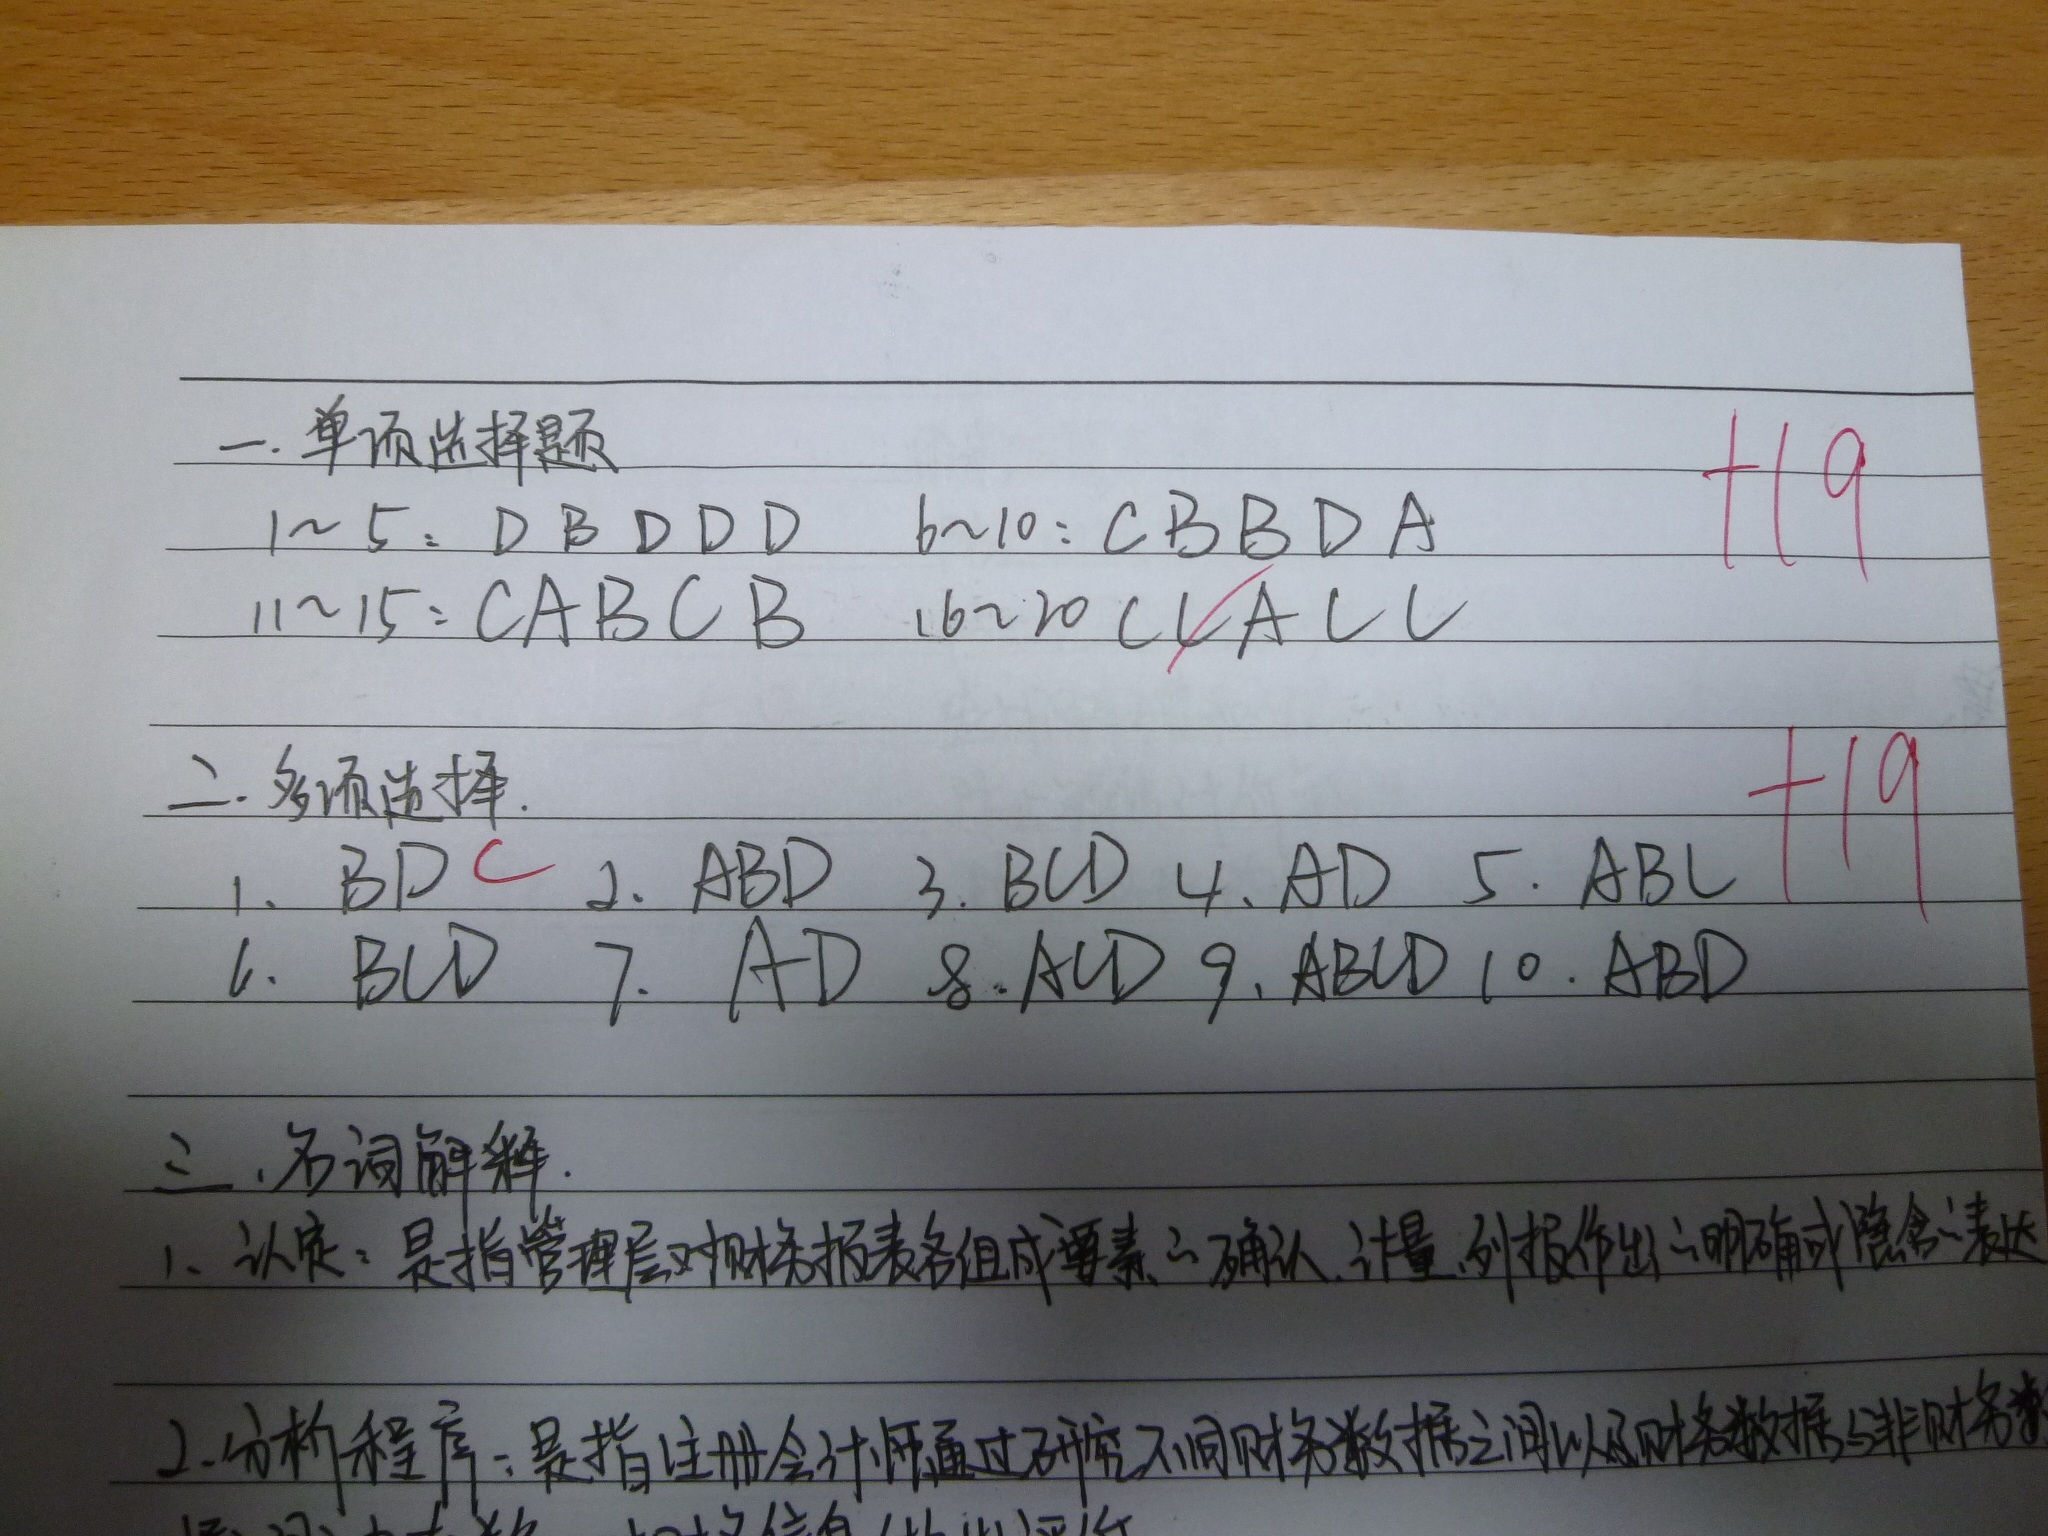 一.单项选择题 +19
1~5: D B D D D 6~10: C B B D A
11~15: C A B C B 16~20 C C A C C
二.多项选择. +19
1. BD C 2. ABD 3. BCD 4. AD 5. ABC
6. BCD 7. AD 8. ACD 9. ABCD 10. ABD
三.名词解释.
1、认定:是指管理层对财务报表各组成要素的确认、计量、列报作出的明确或隐含的表达
2.分析程序:是指注册会计师通过研究不同财务数据之间以及财务数据与非财务数